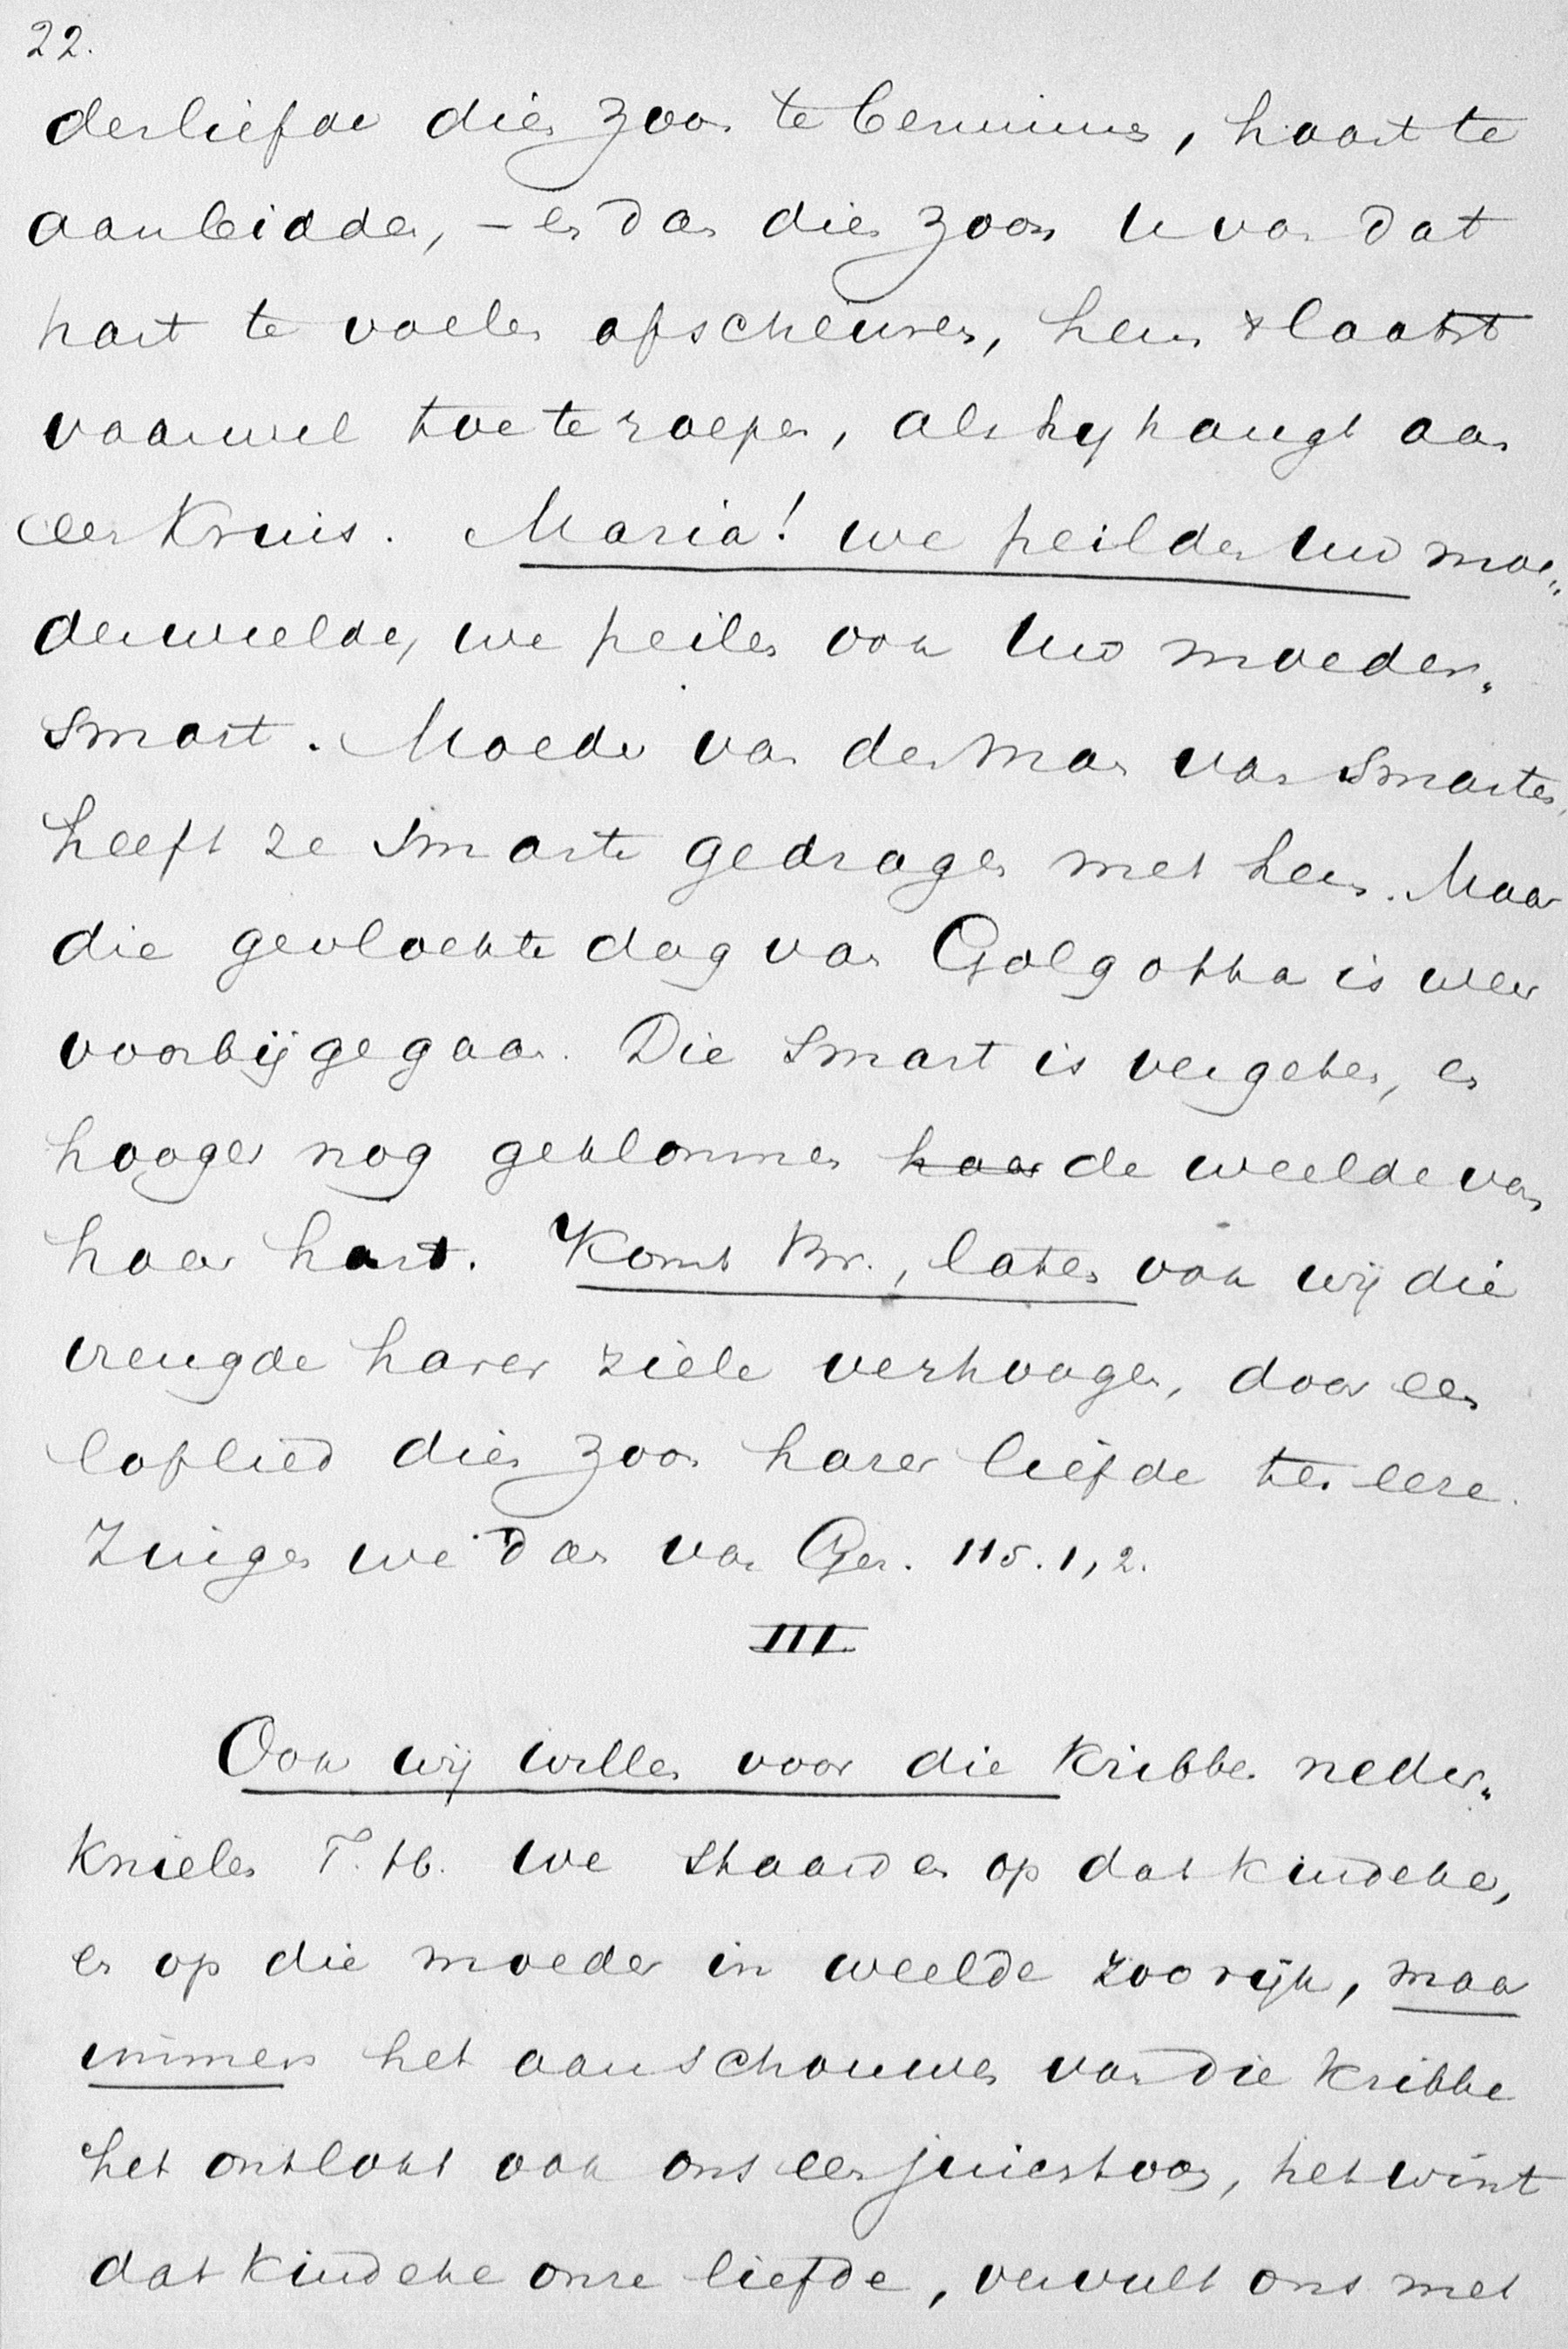 22.
derliefde dien zoon te beminnen, haast te
aanbidden, – en dan dien zoon u van dat
hart te voelen afscheuren, hem 't laatst
vaarwel toe te roepen, als hy hangt aan
een Kruis. Maria! we peilden Uw moe„
derweelde, we peilen ook Uw moeder„
smart. Moeder van den Man van Smarten,
heeft ze smarte gedragen met hem. Maar
die gevloekte dag van Golgotha is weer
voorbijgegaan. Die smart is vergeten, en
hooger nog geklommen haar de weelde van
haar hart. Komt Br., laten ook wij die
vreugde harer ziele verhoogen, door een
loflied dien zoon harer liefde ter eere.
Zingen we dan van Gez. 115.1,2.
III
Ook wij willen voor die Kribbe neder„
Knielen T. H. we staarden op dat kindeke,
en op die moeder in weelde zoo rijk, maar
immers het aanschouwen van die Kribbe
het ontlokt ook ons een juichtoon, het wint
dat kindeke onze liefde, vervult ons met